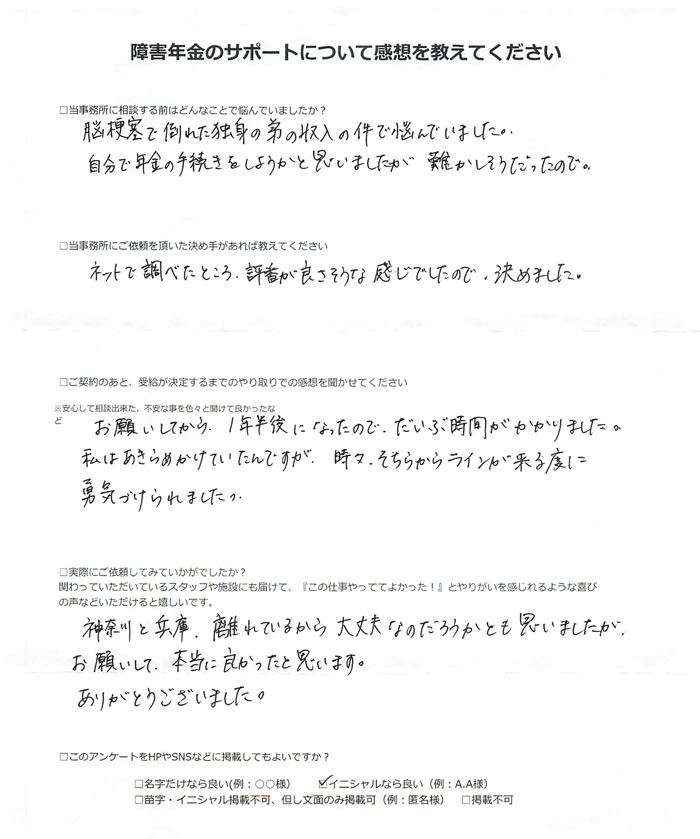 障害年金のサポートについて感想を教えてください
□当事務所に相談する前はどんなことで悩んでいましたか？
脳梗塞で倒れた独身の弟の収入の件で悩んでいました。
自分で年金の手続きをしようかと思いましたが 難かしそうだったので。
□当事務所にご依頼を頂いた決め手があれば教えてください
ネットで調べたところ、評番が良さそうな感じでしたので、決めました。
□ご契約のあと、受給が決定するまでのやり取りでの感想を聞かせてください
※安心して相談出来た、不安な事を色々と聞けて良かったな
ど
お願いしてから、1年半後になったので、だいぶ時間がかかりました。
私はあきらめかけていたんですが、時々、そちらからラインが来る度に
勇気づけられました。
□実際にご依頼してみていかがでしたか？
関わっていただいているスタッフや施設にも届けて、『この仕事やっててよかった！』とやりがいを感じれるような喜び
の声などいただけると嬉しいです。
神奈川と兵庫、離れているから大丈夫なのだろうかとも思いましたが、
お願いして、本当に良かったと思います。
ありがとうございました。
□このアンケートをHPやSNSなどに掲載してもよいですか？
□名字だけなら良い(例：○○様） ☑イニシャルなら良い（例：A.A様）
□苗字・イニシャル掲載不可、但し文面のみ掲載可（例：匿名様） □掲載不可